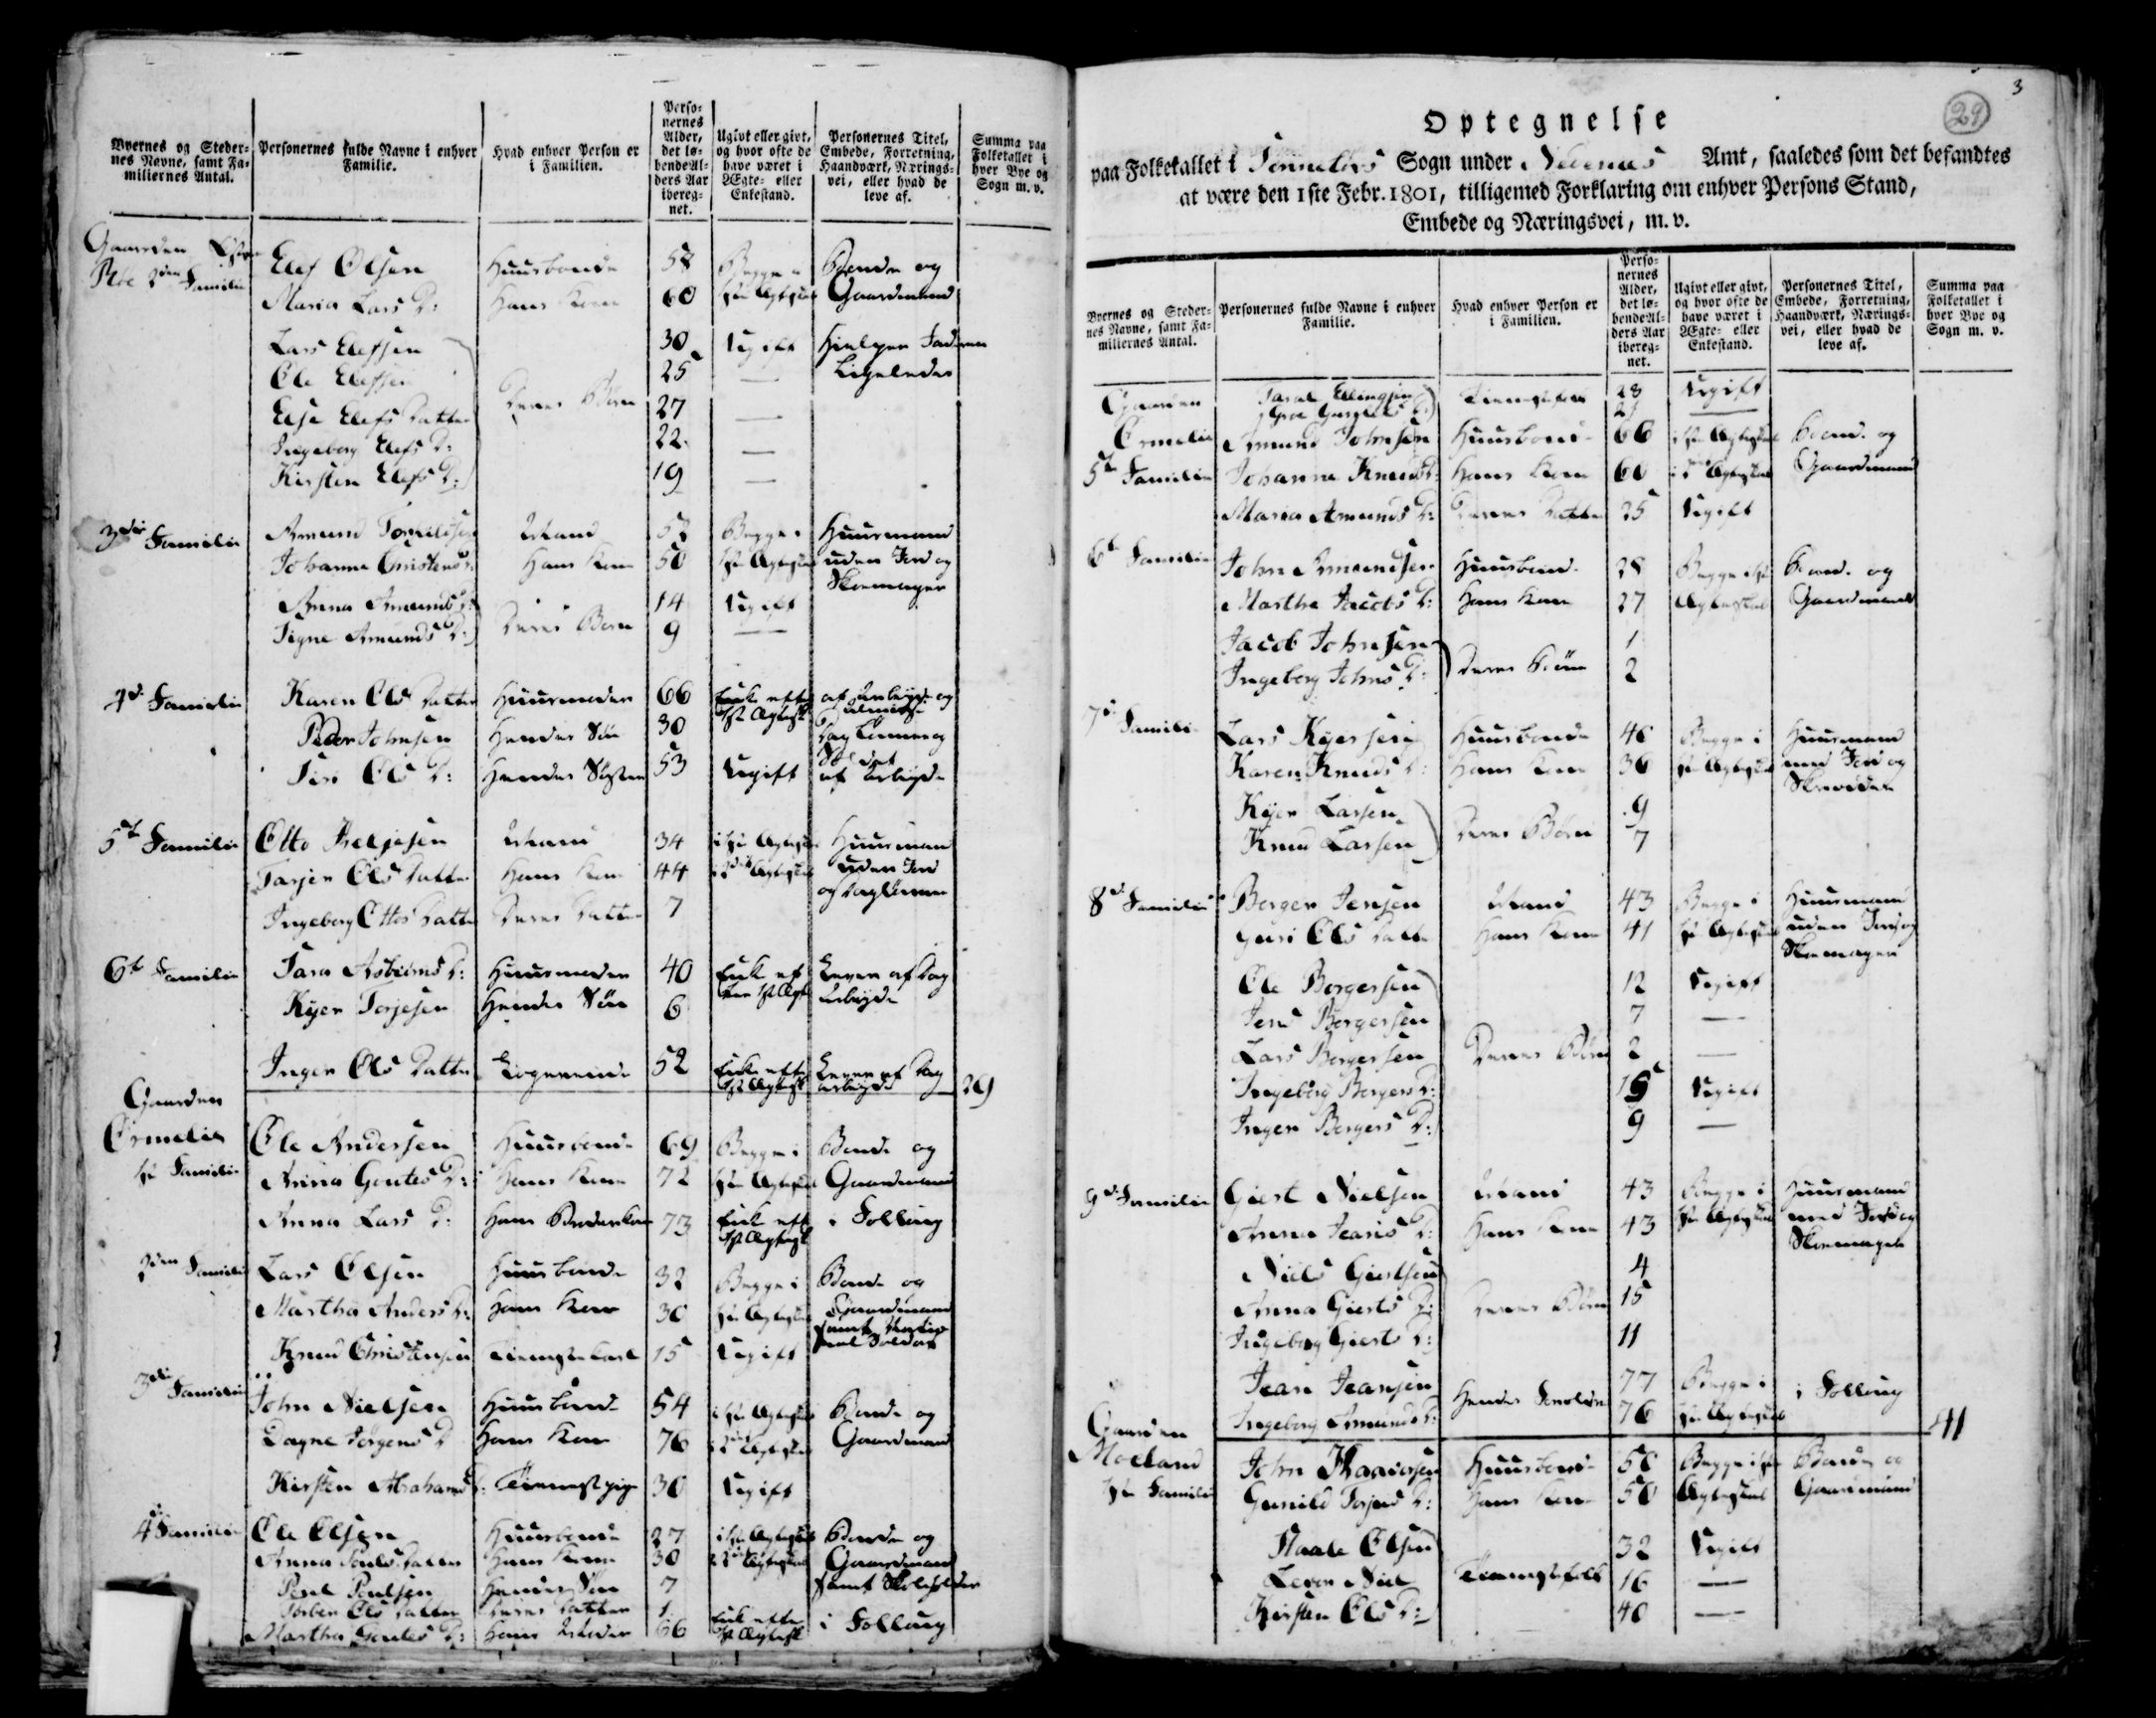 Byernes og Steder-
nes Navne, samt Fa-
miliernes Antal.
Personernes fulde Navne i enhver
Familie.
Hvad enhver Person er
i Familien.
Perso-
nernes
Alder,
det lø-
bende Al-
ders Aar
ibereg-
net.
Ugivt eller givt,
og hvor ofte de
have været i
Ægte- eller
Enkestand.
Personernes Titel,
Embede, Forretning,
Haandværk, Nærings-
vei, eller hvad de
leve af.
Summa paa
Folketallet i
hver Bye og
Sogn m. v.
Gaarden
2den Familie
Elef Olsen Huusbonde 58 Begge i Bonde og
Maria Lars D: Hans Kone 60 1ste Ægteskab Gaardmand
Lars Elefsen 30 Ugift
Ole Elefsen 25 — Ligeledes
Deres Børn
Else Elefs Datter 27 —
Ingeborg Elefs D: 22 —
Kirsten Elefs D: 19 —
3die Familie
Amund Mand Begge i Huusmand
Johanna Christens D: Hans Kone 50 1ste Ægteskab uden Jord og
Skoemager
Anna Amunds D: 14 Ugift
Deres Børn
Signe Amunds D: 9 —
4de Familie
Karen Ols Datter Huusmoder 66 Enke efter
1st Ægtesk
Peder Johnsen Hendes Søn 30
Siri Ols D: Hendes Søster 53 Ugift af Arbeyde
5te Familie
Otto Mand 34 i 1ste Ægteskab Huusmand
Tarjer Ols Datter Hans Kone 44 i 2det Ægteskab uden Jord
Ingeborg Ottos Datter Deres Datter 7 og Daglønner
6te Familie
Sara D: Huusmoder 40 Enke ef Lever af Dag
Kyer Torjesen Hendes Søn 6 Arbeyde
Inger Ols Datter Logerende 52 Enke efter Lever af Dag
1st Ægtesk arbeyde 29
Gaarden
Ormelie
1ste Familie
Ole Andersen Huusbonde 69 Begge i Bonde og
Anna Goutes D: Hans Kone 72 1ste Ægteskab Gaardmand
Anna Lars D: Hans 73 Enke eft i Folloug
1st Ægtesk
2den Familie
Lars Olsen Huusbonde 32 Begge i Bonde og
Martha Anders D: Hans Kone 30 1ste Ægteskab Gaardmand
samt
Knud Christensen Tienestekarl 15 Ugift Soldat
3die Familie
John Nielsen Huusbonde 54 i 1ste Ægteskab Bonde og
Dagne Jørgens D Hans Kone 76 i 2det Ægteskab Gaardmand
Kirsten Abrahams D: Tienestpige 30 Ugift
4de Familie
Ole Olsen Huusbonde 27 i 1ste Ægteskab Bonde og
Anna Povls Datter Hans Kone 30 i 2det Ægteskab Gaardmand
Poul Poulsen Hendes Søn 7 samt Skoleholder
Ols Datter Deres Datter 1
Martha Goutes D: Hans Moder 66 Enke efter i Folloug
1st Ægtesk
3
29
Optegnelse
paa Folketallet i Sogn under Nedenæs Amt, saaledes som det befandtes
at være den 1ste Febr. 1801, tilligemed Forklaring om enhver Persons Stand,
Embede og Næringsvei, m. v.
Byernes og Steder-
nes Navne, samt Fa-
miliernes Antal.
Personernes fulde Navne i enhver
Familie.
Hvad enhver Person er
i Familien.
Perso-
nernes
Alder,
det lø-
bende Al-
ders Aar
ibereg-
net.
Ugivt eller givt,
og hvor ofte de
have været i
Ægte- eller
Enkestand.
Personernes Titel,
Embede, Forretning,
Haandværk, Nærings-
vei, eller hvad de
leve af.
Summa paa
Folketallet i
hver Bye og
Sogn m. v.
Gaarden
Ormelie
Ellingsen Tienestefolk 28 Ugift
Groe D: —
5te Familie
Amund Johnsen Huusbonde 66 i 1ste Ægteskab Bonde og
Johanna Knuds D: Hans Kone 60 i Ægteskab Gaardmand
Maria Amunds D: Deres Datter 25 Ugift
6te Familie
John Amundsen Huusbond 28 Begge i 1ste Bonde og
Martha Jacobs D: Hans Kone 27 Ægteskab Gaardmand
Jacob Johnsen 1
Deres Børn
Ingeborg Johns D: 2
7de Familie
Lars Kyersen Huusbonde 40 Begge i Huusmand
Karen Knuds D: Hans Kone 36 1ste Ægteskab med Jord og
Kyer Larsen 9
Deres Børn
Knud Larsen 7
8de Familie
Berger Jensen Mand 43 Begge i Huusmand
Guri Ols Datter Hans Kone 41 1ste Ægteskab uden Jord og
Skoemager
Ole Bergersen 12 Ugift
Jens Bergersen 7 —
Lars Bergersen Deres Børn 2 —
Ingeborg Bergers D: Ugift
Inger Bergers D: 9 —
9de Familie
Giert Nielsen Mand 43 Begge i Huusmand
Anna Jeans D: Hans Kone 43 1ste Ægteskab med Jord og
Skoemager
Niels Giertsen 4
Anna Gierts D: Deres Børn 15
Ingeborg Gierts D: 11
Jean Jeansen 77 Begge i
Hendes Forældre i Folloug
Ingeborg Amunds D: 76 1ste Ægteskab 41
Gaarden
Moeland
1ste Familie
John Huusbonde 50 Begge i 1ste Bonde og
Gunild D: Hans Kone 50 Ægteskab Gaardmand
Olsen 32 Ugift
Tienestefolk 16 —
Kirsten Ols D: 40 —